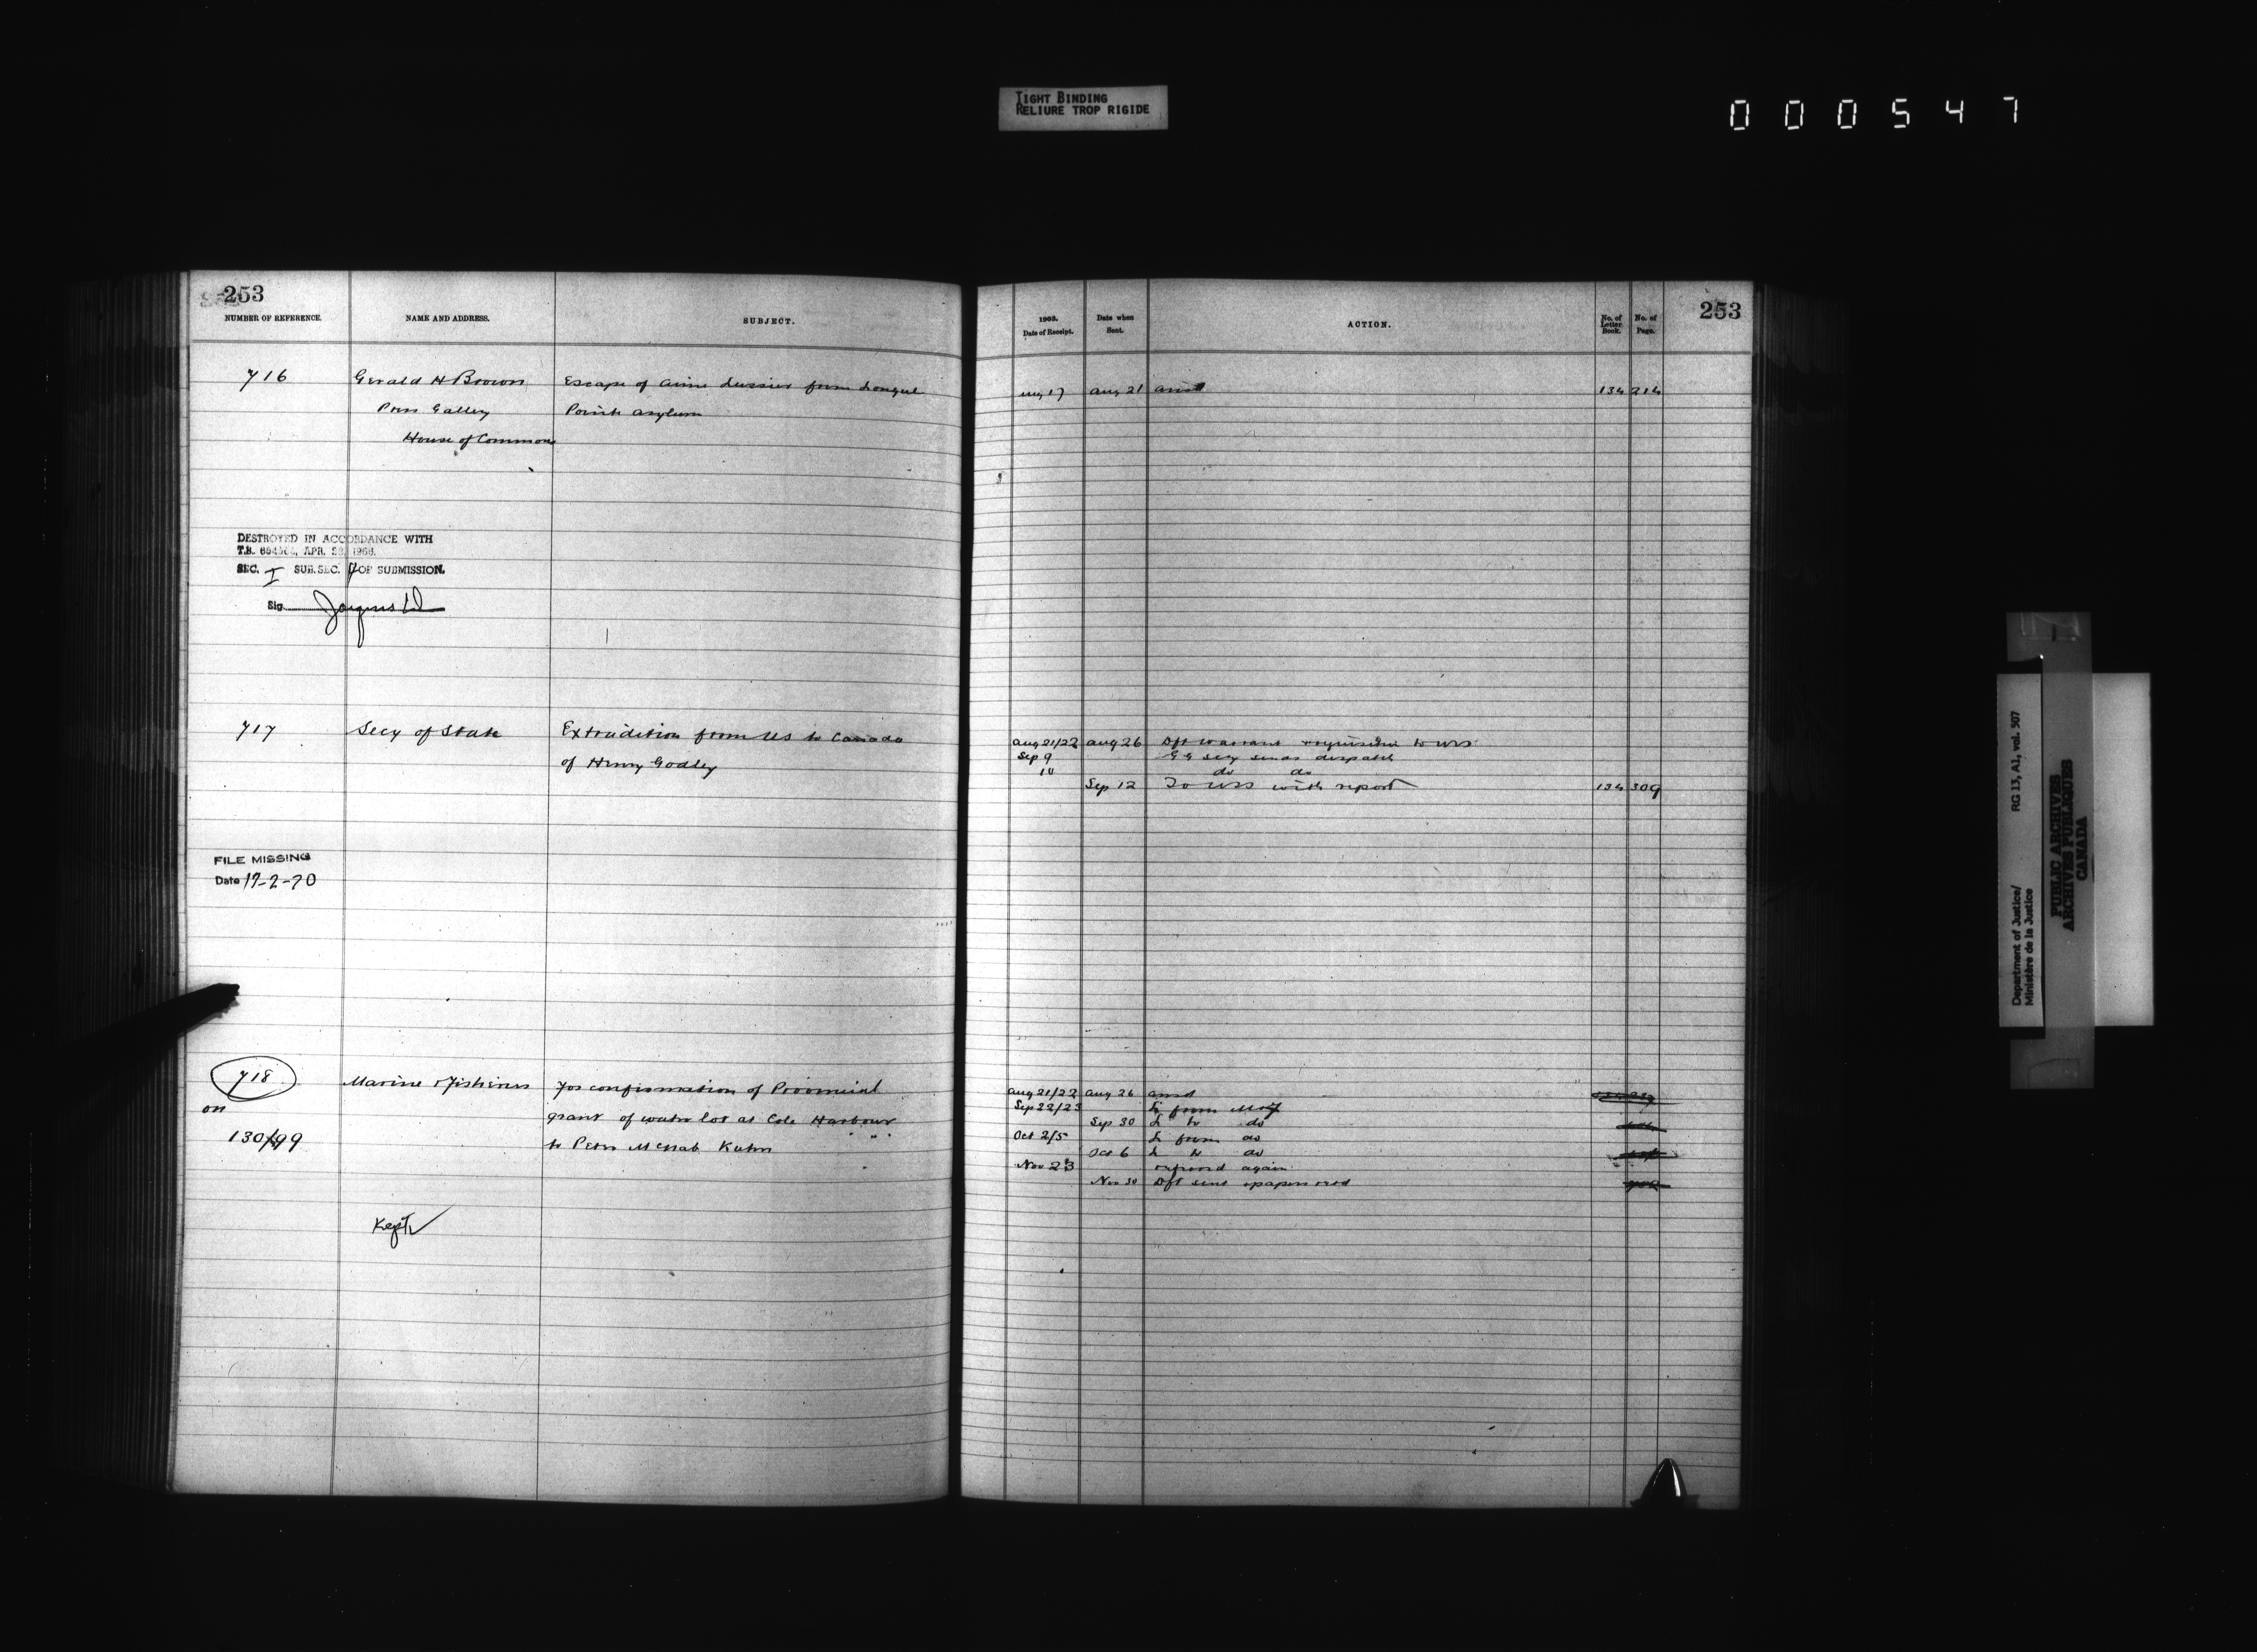 TIGHT BINDING
RELIURE TROP RIGIDE
000547
253
NUMBER OF REFERENCE.
NAME AND ADDRESS.
SUBJECT.
716
Gerald H Brown
Press Gallery
House of Commons
Escape of from Longue
Point asylum
DESTROYED IN ACCORDANCE WITH
T.B. APR. 28, 1966.
SEC. I SUB.SEC. OF SUBMISSION.
Sig.
717
Secy of State
Extradition from US to Canada
of Henry Godley
FILE MISSING
Date 17-2-70
718
on
130/99
Marine & Fisheries
For confirmation of Provincial
grant of water lot at Cole Harbour
to Peter McNab Kuhn
Kept ✓
253
1903.
Date of Receipt.
Date when
Sent.
ACTION.
No. of
Letter
Book.
No. of
Page.
Aug 17 Aug 21 ansd 134 214
Aug 21/22 Aug 26 Dft warrant & requisition to
Sep 9 GG secy sends despatch
10 do do
Sep 12 To with report 134 309
Aug 21/22 Aug 26 ansd
Sep 22/23 L from
Sep 30 L to do
Oct 2/5 L from do
Oct 6 L to do
Nov 23 again
Nov 30 Dft sent & papers retd
Department of Justice/
Ministère de la Justice
RG 13, A1, vol. 507
PUBLIC ARCHIVES
ARCHIVES PUBLIQUES
CANADA